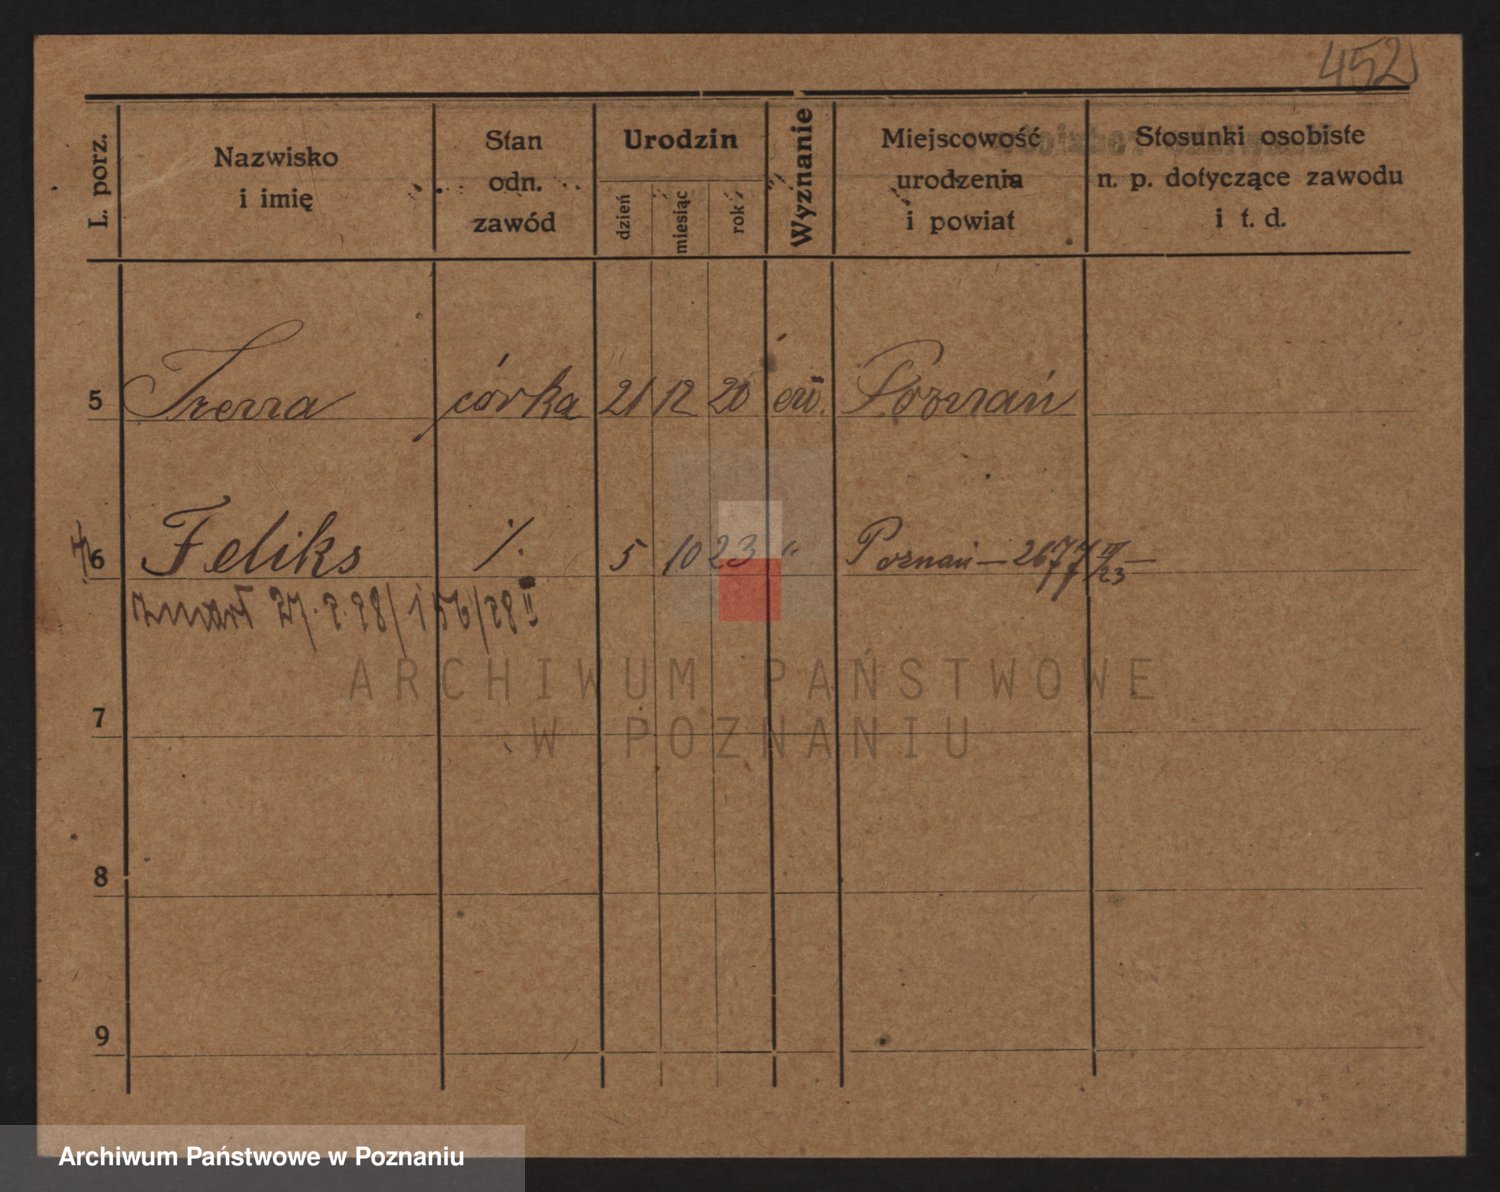 452
L. porz.
Nazwisko
i imię
Stan
odn.
zawód
Urodzin
dzień
miesiąc
rok
Wyznanie
Miejscowość
urodzenia
i powiat
Stosunki osobiste
n. p. dotyczące zawodu
i t. d.
5 Irena córka 21 12 20 ew. Poznań
6 Feliks ./. 5 10 23 " Poznań — 2677
zmarł 27. 2. 28/
7
8
9
ARCHIWUM PAŃSTWOWE
W POZNANIU
Archiwum Państwowe w Poznaniu